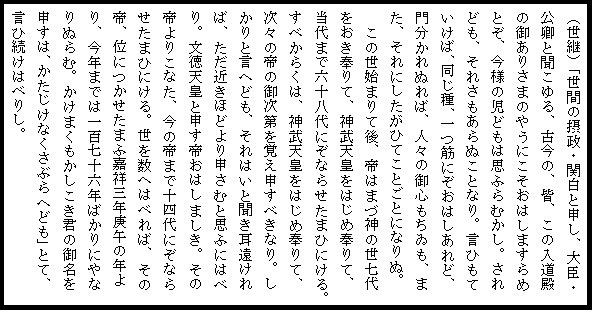 (世継)「世間の摂政・関白と申し、大臣・
公卿と聞こゆる、古今の、皆、この入道殿
の御ありさまのやうにこそおはしますらめ
とぞ、今様の児どもは思ふらむかし。され
ども、それさもあらぬことなり。言ひもて
いけば、同じ種、一つ筋にぞおはしあれど、
門分かれぬれば、人々の御心もちゐも、ま
た、それにしたがひてことごとになりぬ。
この世始まりて後、帝はまづ神の世七代
をおき奉りて、神武天皇をはじめ奉りて、
当代まで六十八代にぞならせたまひにける。
すべからくは、神武天皇をはじめ奉りて、
次々の帝の御次第を覚え申すべきなり。し
かりと言へども、それはいと聞き耳遠けれ
ば、ただ近きほどより申さむと思ふにはべ
り。文徳天皇と申す帝おはしましき。その
帝よりこなた、今の帝まで十四代にぞなら
せたまひにける。世を数へはべれば、その
帝、位につかせたまふ嘉祥三年庚午の年よ
り、今年までは一百七十六年ばかりにやな
りぬらむ。かけまくもかしこき君の御名を
申すは、かたじけなくさぶらへども」とて、
言ひ続けはべりし。